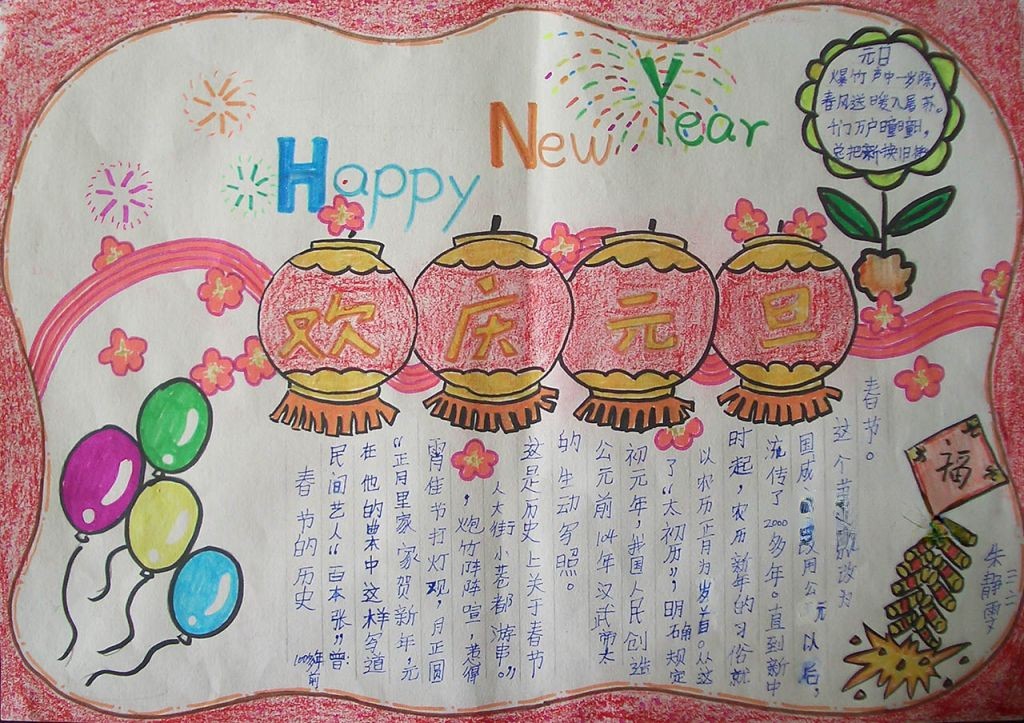 Happy New Year
欢庆元旦
元日
爆竹声中一岁除,
春风送暖入屠苏。
千门万户瞳瞳日,
总把新换旧
福
三二
朱静雯
春节的历史
100多年前
民间艺人“百本张”曾
在他的曲本中这样写道
“正月里家家贺新年,元
宵佳节打灯观,月正圆
,炮竹阵阵喧,惹得
人大街小巷都游串。”
这是历史上关于春节
的生动写照。
公元前104年汉武帝太
初元年,我国人民创造
了“太初历”,明确规定
以农历正月为岁首。从这
时起,农历新年的习俗就
流传了2000多年。直到新中
国成改用公元以后,
这个改为
春节。